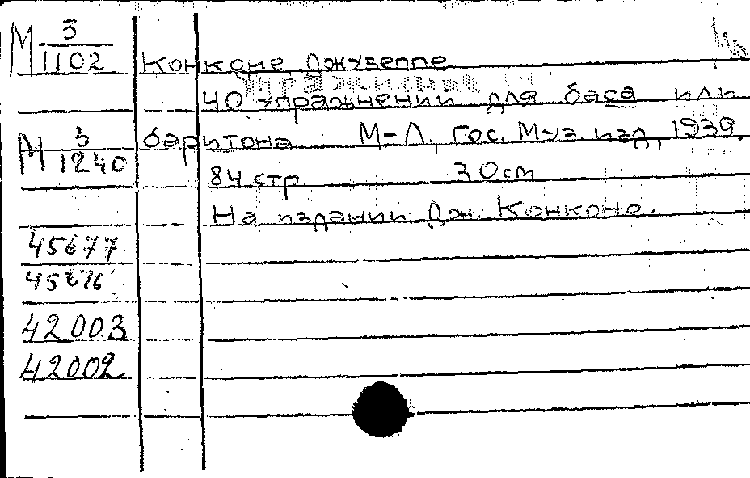 М 3/1102
Конконе, Джузеппе
40 упражнений для баса или
М 3/1240
баритона М-Л, Гос. Муз. изд, 1939.
84 стр 30см
На издании Дж. Конконо.
45677
45676
42003
42002